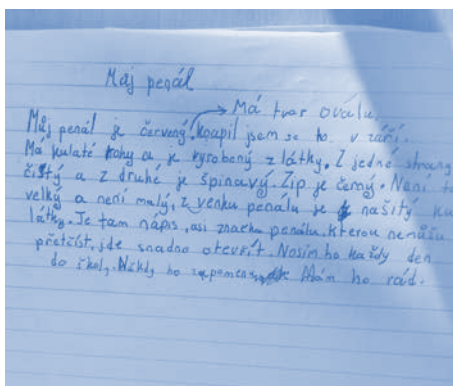 Můj penál
Má tvar oválu.
Můj penál je červený. Koupil jsem se ho v září.
Má kulaté rohy a je vyrobený z látky. Z jedné strany
čistý a z druhé je špinavý. Zip je černý. Není
velký a není malý, z venku penálu je našitý
látky. Je tam nápis, asi značka penálu, kterou nemůžu
přečíst, jde snadno otevřít. Nosím ho každý den
do školy. Někdy ho zapomenu. Mám ho rád.